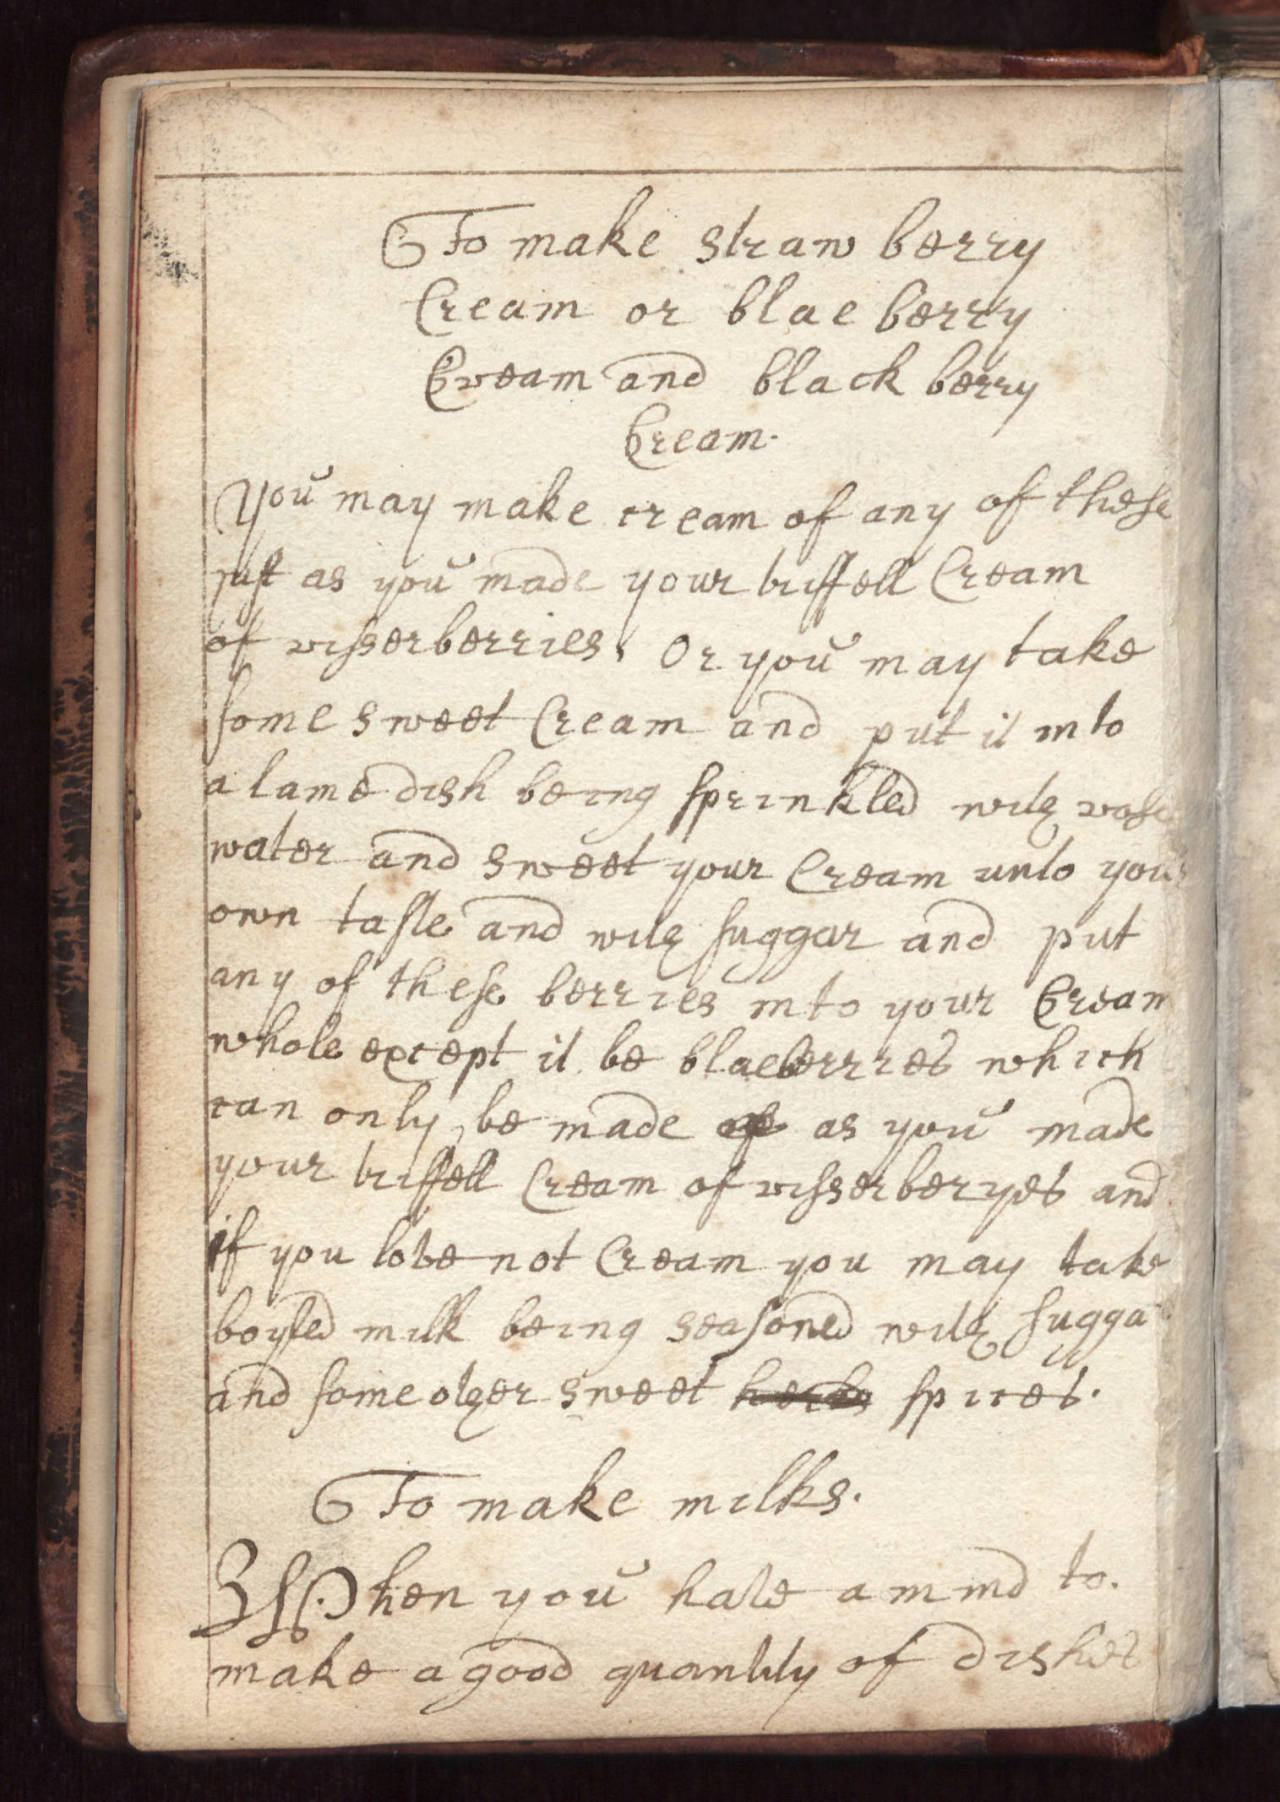 To make straw berry
Cream or blae berry
Cream and black berry
Cream.
You may make cream of any of these
just as you made your triffell Cream
of risserberries, Or you may take
some sweet Cream and put it into
a lame dish being sprinkled with rose
water and sweet your Cream unto your
own taste and with suggar and put
any of these berries into your Cream
whole except it be blaeberries which
can only be made as you made
your triffell Cream of risserberyes and
if you love not Cream you may take
boyled milk being seasoned with sugga
and some other sweet herbs spices.
To make milks.
When you have a mind to.
make a good quantity of dishes